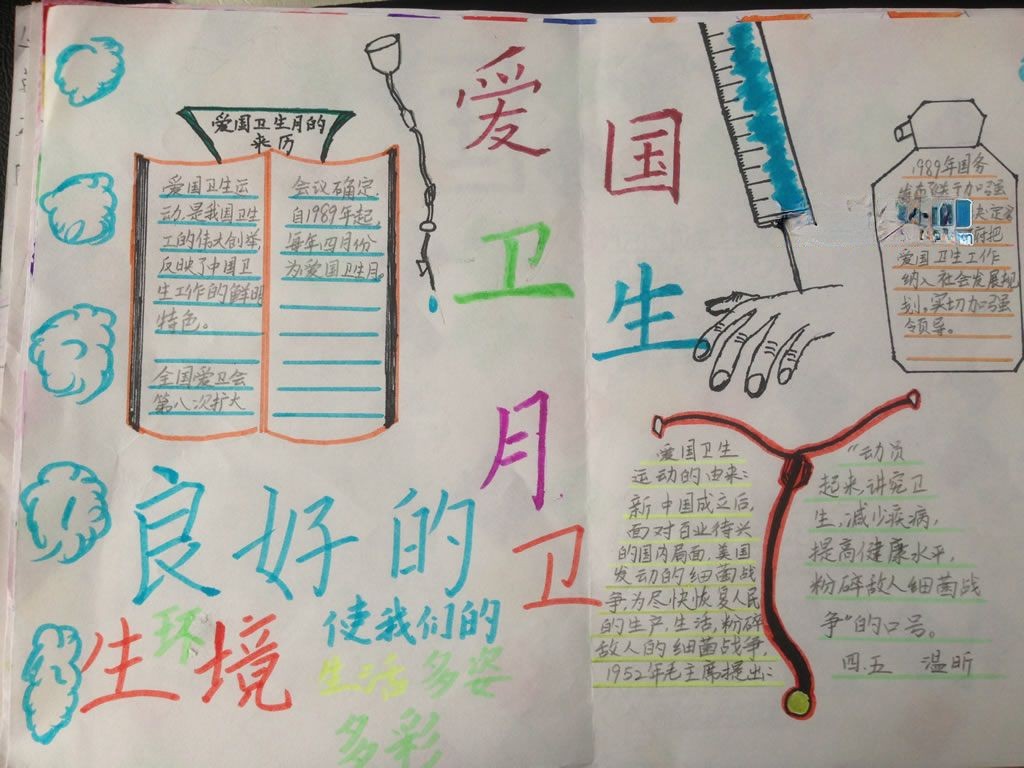 爱国卫生月
爱国卫生月的
来历
爱国卫生运
动,是我国卫生
工的伟大创举,
反映了中国卫
生工作的鲜明
特色。
全国爱卫会
第八次扩大
会议确定,
自1989年起,
每年四月份
为爱国卫生月。
1989年国务
加强
决定
府把
爱国卫生工作
纳入社会发展规
划,实切加强
令领导。
良好的卫
生环境
使我们的
生活多姿
多彩
爱国卫生
运动的由来:
新中国成之后,
面对百业待兴
的国内局面,美国
发动的细菌战
争,为尽快恢复人民
的生产生活,粉碎
敌人的细菌战争,
1952年毛主席提出:
“动员
起来,讲究卫
生,减少疾病,
提高健康水平,
粉碎敌人细菌战
争”的口号。
四.五 温昕